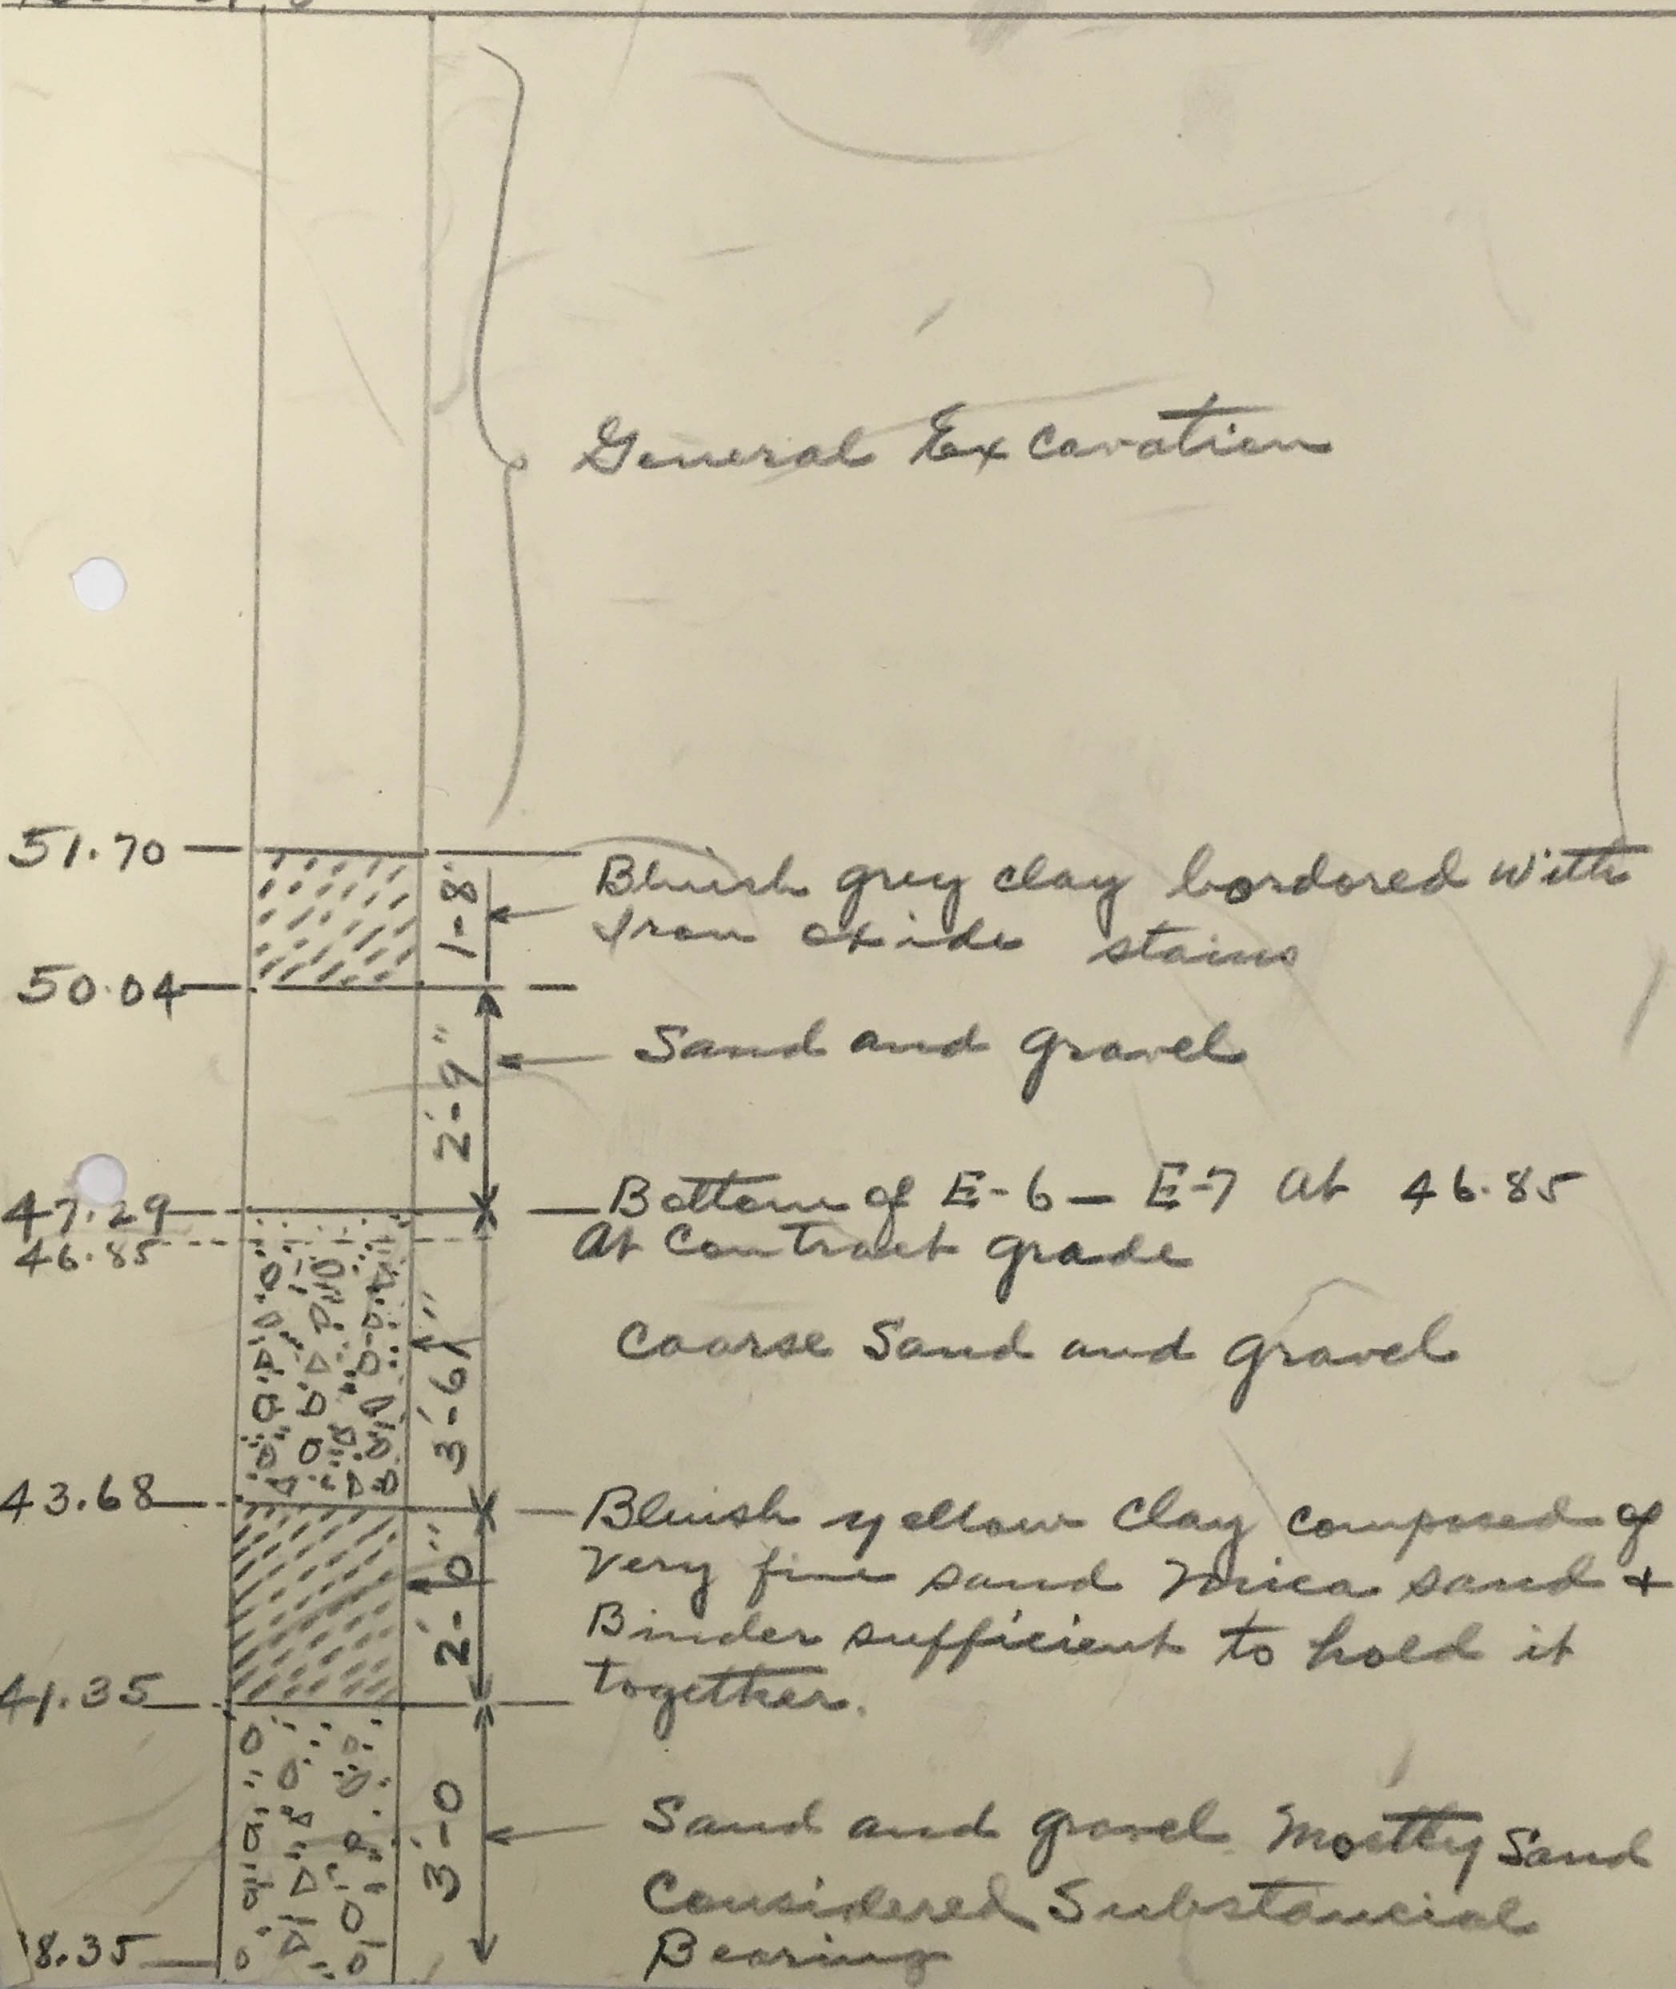 General Excavation
51.70
1'-8"
Bluish grey clay bordored with
Iron oxide stains
50.04
2'-9"
Sand and gravel
47.29
Bottom of E-6 — E-7 at 46.85
46.85
At Contract grade
3'-6"
Coarse Sand and gravel
43.68
Bluish yellow Clay composed of
2'-0"
Very fine sand Mica sand +
Binder sufficient to hold it
together.
41.35
3'-0
Sand and gravel. Mostly Sand
Considered Substancial
8.35
Bearing